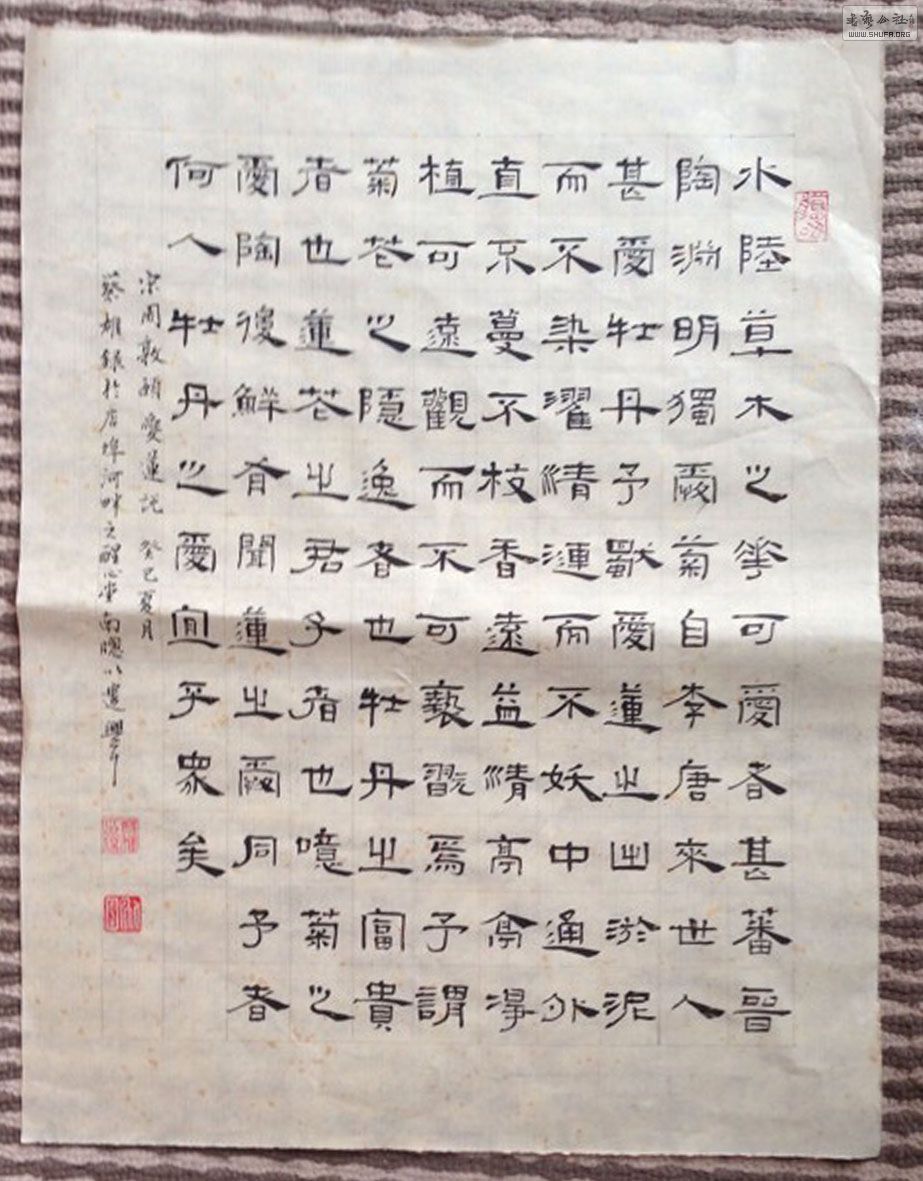 水陸草木之華可愛者甚蕃晉
陶淵明獨愛菊自李唐來世人
甚愛牡丹予獨愛蓮之出淤泥
而不染濯清漣而不妖中通外
直不蔓不枝香遠益清亭亭淨
植可遠觀而不可褻翫焉予謂
菊花之隱逸者也牡丹之富貴
者也蓮花之君子者也噫菊之
愛陶後鮮有聞蓮之愛同予者
何人牡丹之愛宜乎眾矣
宋周敦頤愛蓮説 癸巳夏月
蔡雄銀於店埠河畔之醒心堂南牕以遣興
书艺公社
WWW.SHUFA.ORG